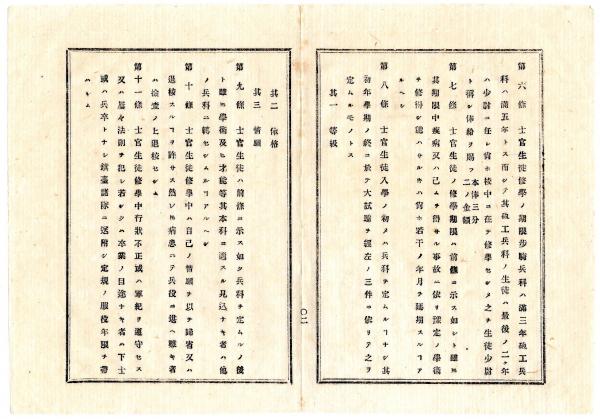 第六條 士官生徒修學ノ期限步騎兵科ハ滿三年砲工兵
科ハ滿五年トス而シテ其砲工兵科ノ生徒ハ最後ノ二ケ年
ハ少尉ニ任シ猶ホ校中ニ在テ修學セシメ之ヲ生徒少尉
ト稱シ俸給ヲ賜フ 本俸三分二ノ金額
第七條 士官生徒ノ修學期限ハ前條ニ示ス如シト雖モ
其期限中疾病又ハ已ムヲ得サル事故ニ依リ豫定ノ學術
ヲ修得シ能ハサルモノハ猶ホ若干ノ年月ヲ延期スルコア
ルヘシ
第八條 士官生徒入學ノ初メハ兵科ヲ定ムルコナシ其
初年學期ノ終ニ於テ大試驗ヲ經左ノ三件ニ依リテ之ヲ
定ムルモノトス
其一 等級
〇二
其二 体格
其三 情願
第九條 士官生徒ハ前條ニ示ス如ク兵科ヲ定ムルノ後
ト雖モ學術及ヒ才能等其本科ニ適スル見込ナキ者ハ他
ノ兵科ニ轉セシムルコアルヘシ
第十條 士官生徒修學中ハ自己ノ情願ヲ以テ歸省又ハ
退校スルコヲ許サス然レモ病患ニテ兵役ニ堪ヘ難キ者
ハ檢査ノ上退校セシム
第十一條 士官生徒修學中行狀不正或ハ軍紀ヲ遵守セス
又ハ屢々法則ヲ犯シ若シクハ卒業ノ目途ナキ者ハ下士
或ハ兵卒トナシ鎭臺諸隊ニ送附シ定規ノ服役年限ヲ帶
ハシム